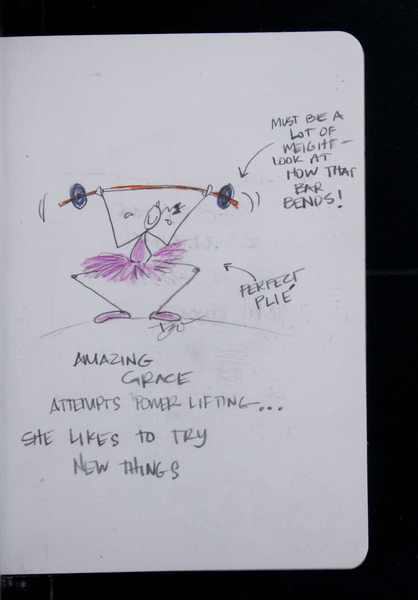 MUST BE A
LOT OF
WEIGHT-
LOOK AT
HOW THAT
BAR
BENDS!
PERFECT
PLIE'
AMAZING
GRACE
ATTEMPTS POWER LIFTING...
SHE LIKES TO TRY
NEW THINGS